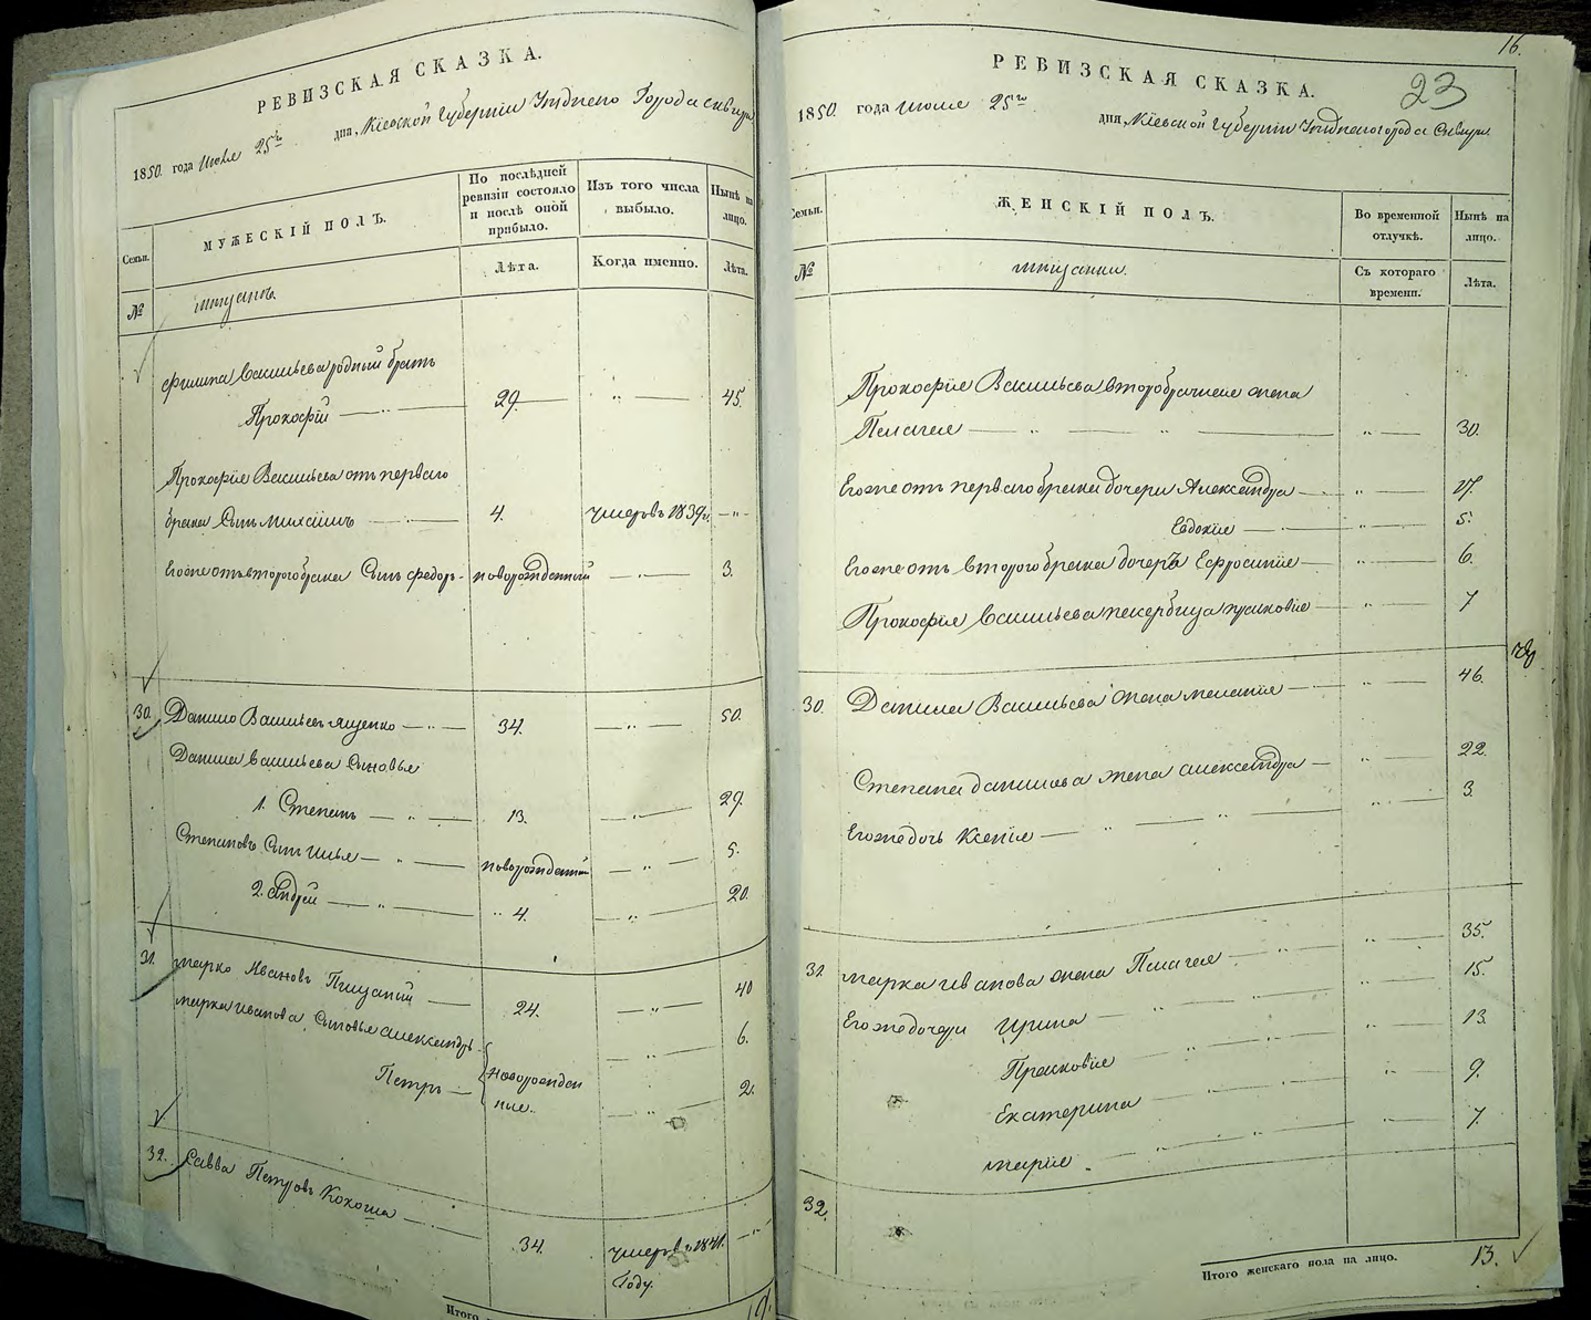 РЕВИЗСКАЯ СКАЗКА.
1850. года Июля 25го дня, Кіевской Губерніи Уѣзднаго Города Сквиры
Семьи.
МУЖЕСКІЙ ПОЛЪ.
По послѣдней ревизіи состояло и послѣ оной прибыло.
Изъ того числа выбыло.
Нынѣ на лицо.
№
мѣщанъ.
Лѣта.
Когда именно.
Лѣта.
Филипа Васильева родный братъ
Прокофій 29. " 45.
Прокофія Васильева отъ перваго
брака Сынъ 4. умеръ въ 1839г. "
Его же отъ втораго брака Сынъ Федоръ новорожденный " 3.
30. Данило Васильевъ Яценко 34. " 50.
Данила Васильева Сыновья
1. Степанъ 13. " 29.
Степановъ Сынъ Илья новорожденный " 5.
2. Андрей 4. " 20.
31. Марко Ивановъ Пищаный 24. " 40
Марка Иванова Сыновья Александръ " 6.
Петръ новорожден
ные. " 2.
32. Савва Петровъ Кокоша 34. умеръ въ 1841. "
Году.
Итого
16.
РЕВИЗСКАЯ СКАЗКА.
23
1850. года Июля 25го дня, Кіевской Губерніи Уѣзднаго города Сквиры
Семьи.
ЖЕНСКІЙ ПОЛЪ.
Во временной отлучкѣ.
Нынѣ на лицо.
№
мѣщанки.
Съ котораго времени.
Лѣта.
Прокофія Васильева второбрачная жена
Пелагея " 30.
Его же отъ перваго брака дочери Александра " 17.
Евдокія " 5.
Его же отъ втораго брака дочерь Ефросинія " 6.
Прокофія Васильева 7
30. Данила Васильева жена Меланія " 46.
Степана Данилова жена Александра " 22.
Его же дочь Ксенія " 3.
31. Марка Иванова жена Пелагея " 35.
Его же дочери Ирина " 15.
Прасковія " 13.
Екатерина " 9.
Марія " 7.
32.
Итого женскаго пола на лицо. 13.